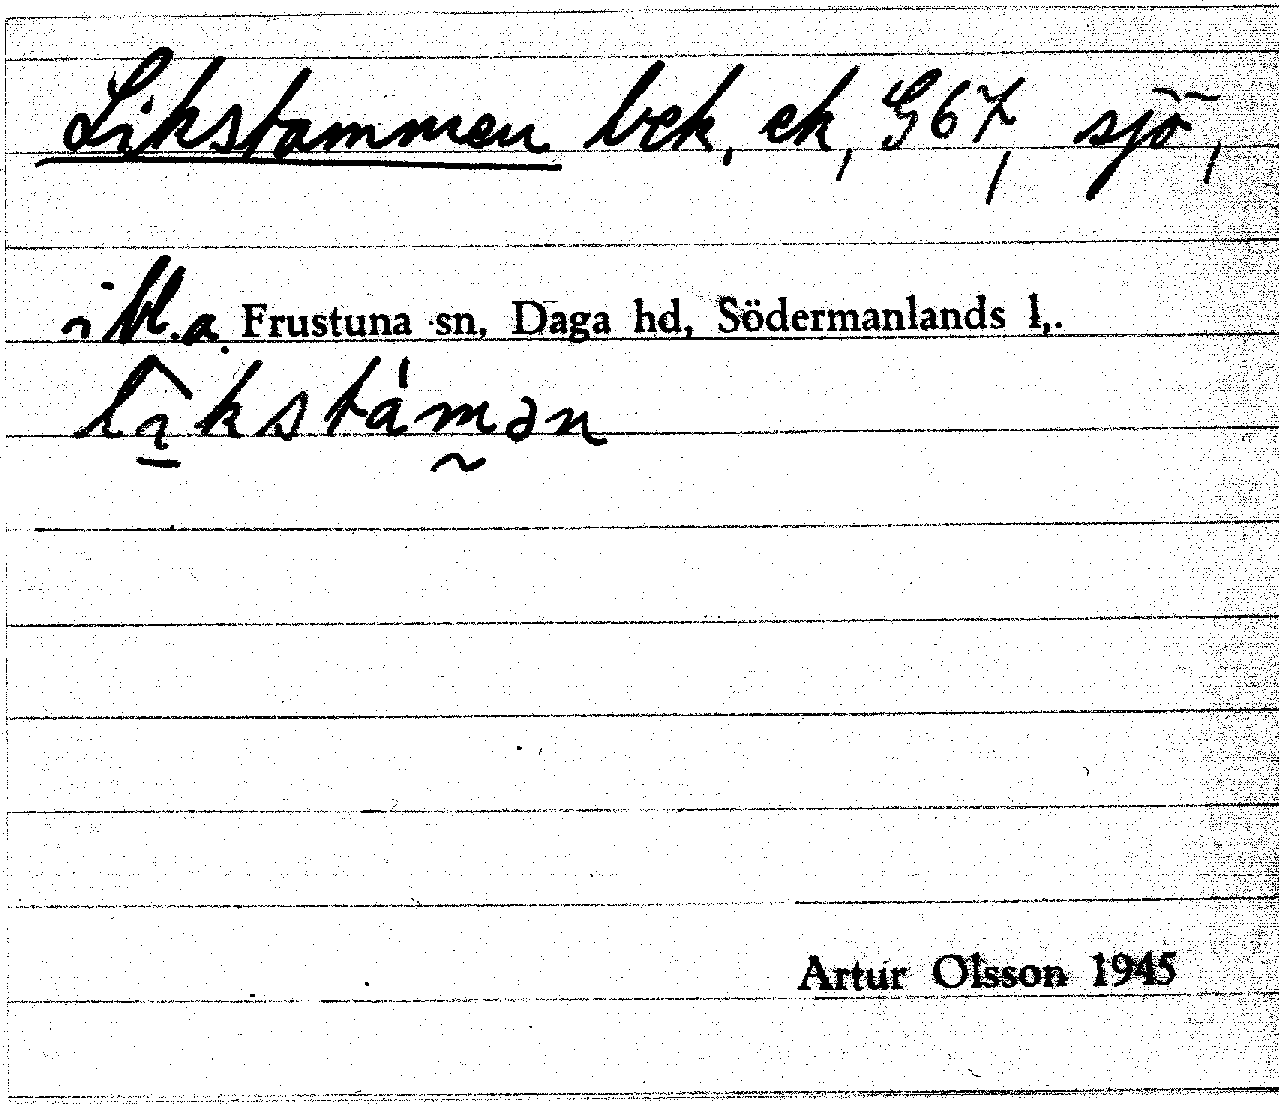 Likstammen bck, ek, G67, sjö,
i bl.a. Frustuna sn, Daga hd, Södermanlands l,.
Artur Olsson 1945